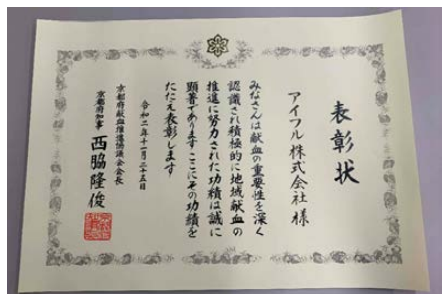 表彰状
アイフル株式会社 様
みなさんは献血の重要性を深く
認識され積極的に地域献血の
推進に努力された功績は誠に
顕著でありますここにその功績を
たたえ表彰します
令和二年十一月二十五日
京都府献血推進協議会会長
京都府知事 西脇隆俊